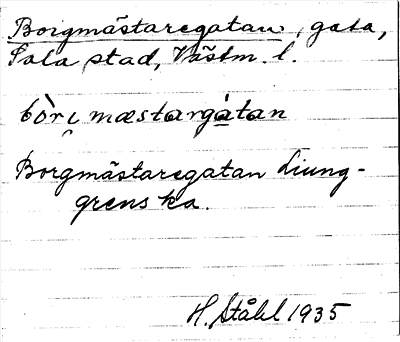 Borgmästaregatan, gata,
Sala stad, Västm. l.
bòrι̯mæstargàtan
Borgmästaregatan Liung-
grenska.
H. Ståhl 1935